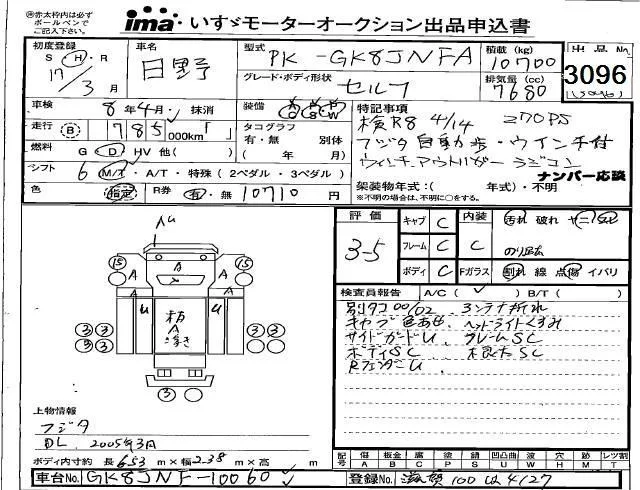 ㊟赤太枠内は必ず
ボールペンで
ご記入下さい。
ima いすゞモーターオークション出品申込書
初度登録 S H・R 17/3月
車名 日野
型式 PK-GK8JNFA
積載(kg) 10700
グレード・ボディ形状 セルフ
排気量(cc) 7680
出品No 3096
車検 8年4月 抹消
装備 A/C P/S P/W
特記事項
検R8 4/14 270PS
走行 B 785,000km「 」
タコグラフ 有・無 別体 ( 年 月)
フジタ自動歩・ウインチ付
燃料 G D HV 他( )
ウィンチ,アウトリガー ラジコン
シフト 6 M/T・A/T・特殊(2ペダル・3ペダル)
ナンバー応談
架装物年式:( 年式)・不明
※不明の場合は、不明に○をする。
色 指定 R券 有・無 10710円
評価 3-5
キャブ C 内装 C 汚れ 破れ ヤニ コゲ
フレーム C
ボディ C Fガラス 割れ 線 点傷 イバリ
検査員報告 A/C( ✓ ) B/T( )
別タコ00/02. コンテナ折れ
キャブ色あせ. ヘッドライトくすみ
サイドガードU フレームSC
ボディSC 根太SC
RフェンダーU
AU
15 A A A 15
A A
U 木打 A U
3 3 3 3
3 3
3
上物情報
フジタ
DL. 2005年3月
ボディ内寸約 長 653 m×幅 2.38 m×高 m
記号 傷 A 板金 B 腐 C 塗 P 錆 S 凸凹曲 U 波 W 穴 H 跡 M トメ T レツ割
車台No. GK8JNF-10060
登録No. 滋賀 100 は 4127